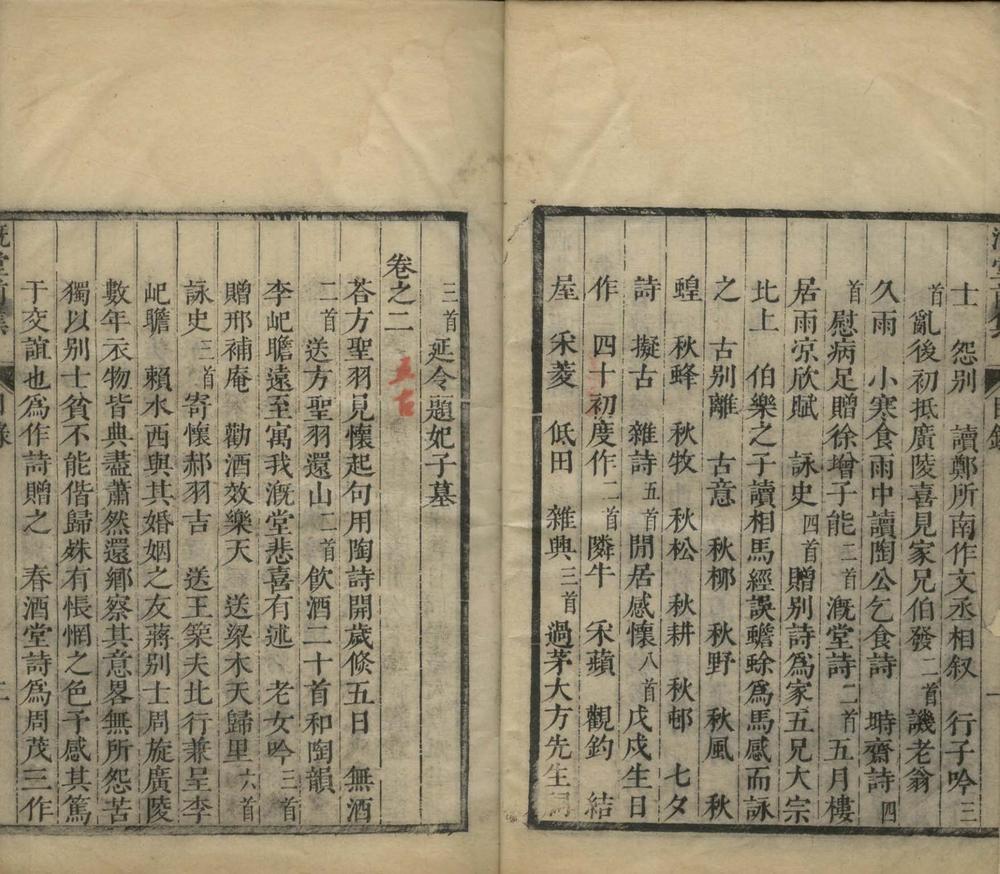 士　怨別　讀鄭所南作文丞相叙　行子吟三
首亂後初抵廣陵喜見家兄伯發二首譏老翁
久雨　小寒食雨中讀陶公乞食詩　塒齋詩四
首慰病足贈徐增子能二首漑堂詩二首五月樓
居雨凉欣賦　詠史四首贈別詩爲家五兄大宗
北上　伯樂之子讀相馬經誤蟾蜍爲馬感而詠
之　古別離　古意　秋柳　秋野　秋風　秋
蝗　秋蜂　秋牧　秋松　秋耕　秋邨　七夕
詩　擬古　雜詩五首閒居感懷八首戊戌生日
作　四十初度作二首隣牛　采蘋　觀釣　結
屋　采菱　低田　雜興三首　過茅大方先生
三首延令題妃子墓
卷之二　五古
荅方聖羽見懷起句用陶詩開歲倐五日　無酒
二首　送方聖羽還山二首飲酒二十首和陶韻
李屺瞻遠至寓我漑堂悲喜有述　老女吟三首
贈邢補庵　勸酒效樂天　送梁木天歸里六首
詠史三首寄懷郝羽吉　送王築夫北行兼呈李
屺瞻　賴水西與其婚姻之友蔣別士周旋廣陵
數年衣物皆典盡蕭然還鄉察其意畧無所怨苦
獨以别士貧不能偕歸姝有悵惘之色予感其篤
于交誼也爲作詩贈之　春酒堂詩爲周茂三作
漑堂前集　目錄　二